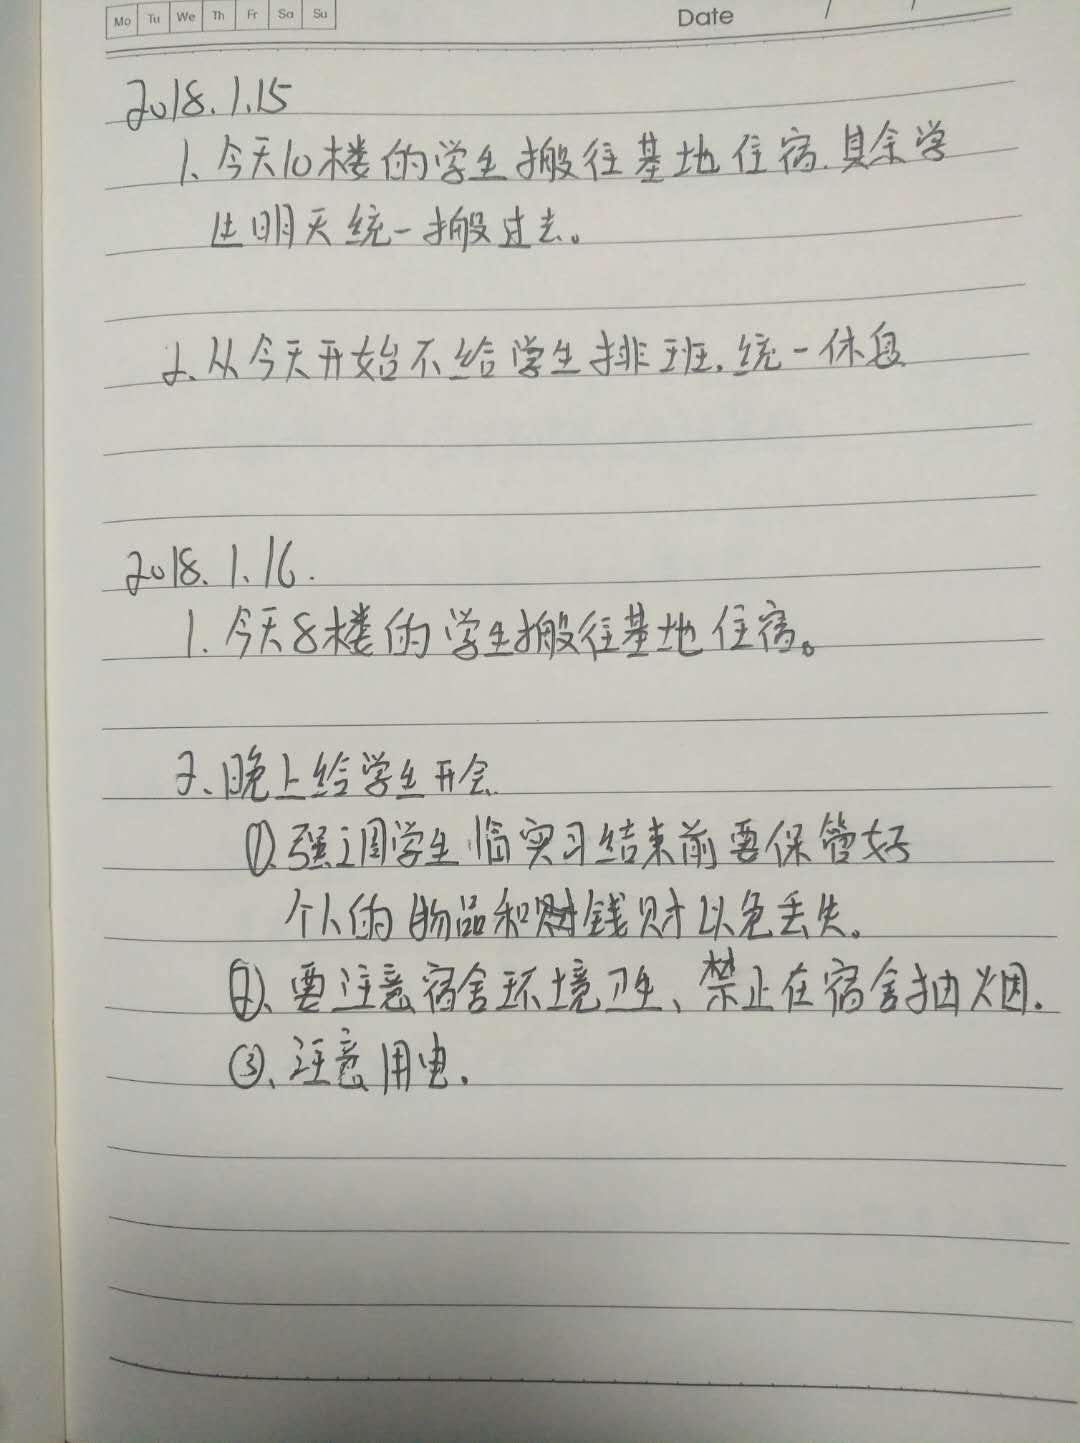 Mo Tu We Th Fr Sa Su
Date / /
2018.1.15
1、今天10楼的学生搬往基地住宿.其余学
生明天统一搬过去。
2、从今天开始不给学生排班.统一休息
2018.1.16.
1.今天8楼的学生搬往基地住宿。
2、晚上给学生开会.
①.强调学生临实习结束前要保管好
个人的物品和钱财以免丢失。
②、要注意宿舍环境卫生、禁止在宿舍抽烟.
③、注意用电.